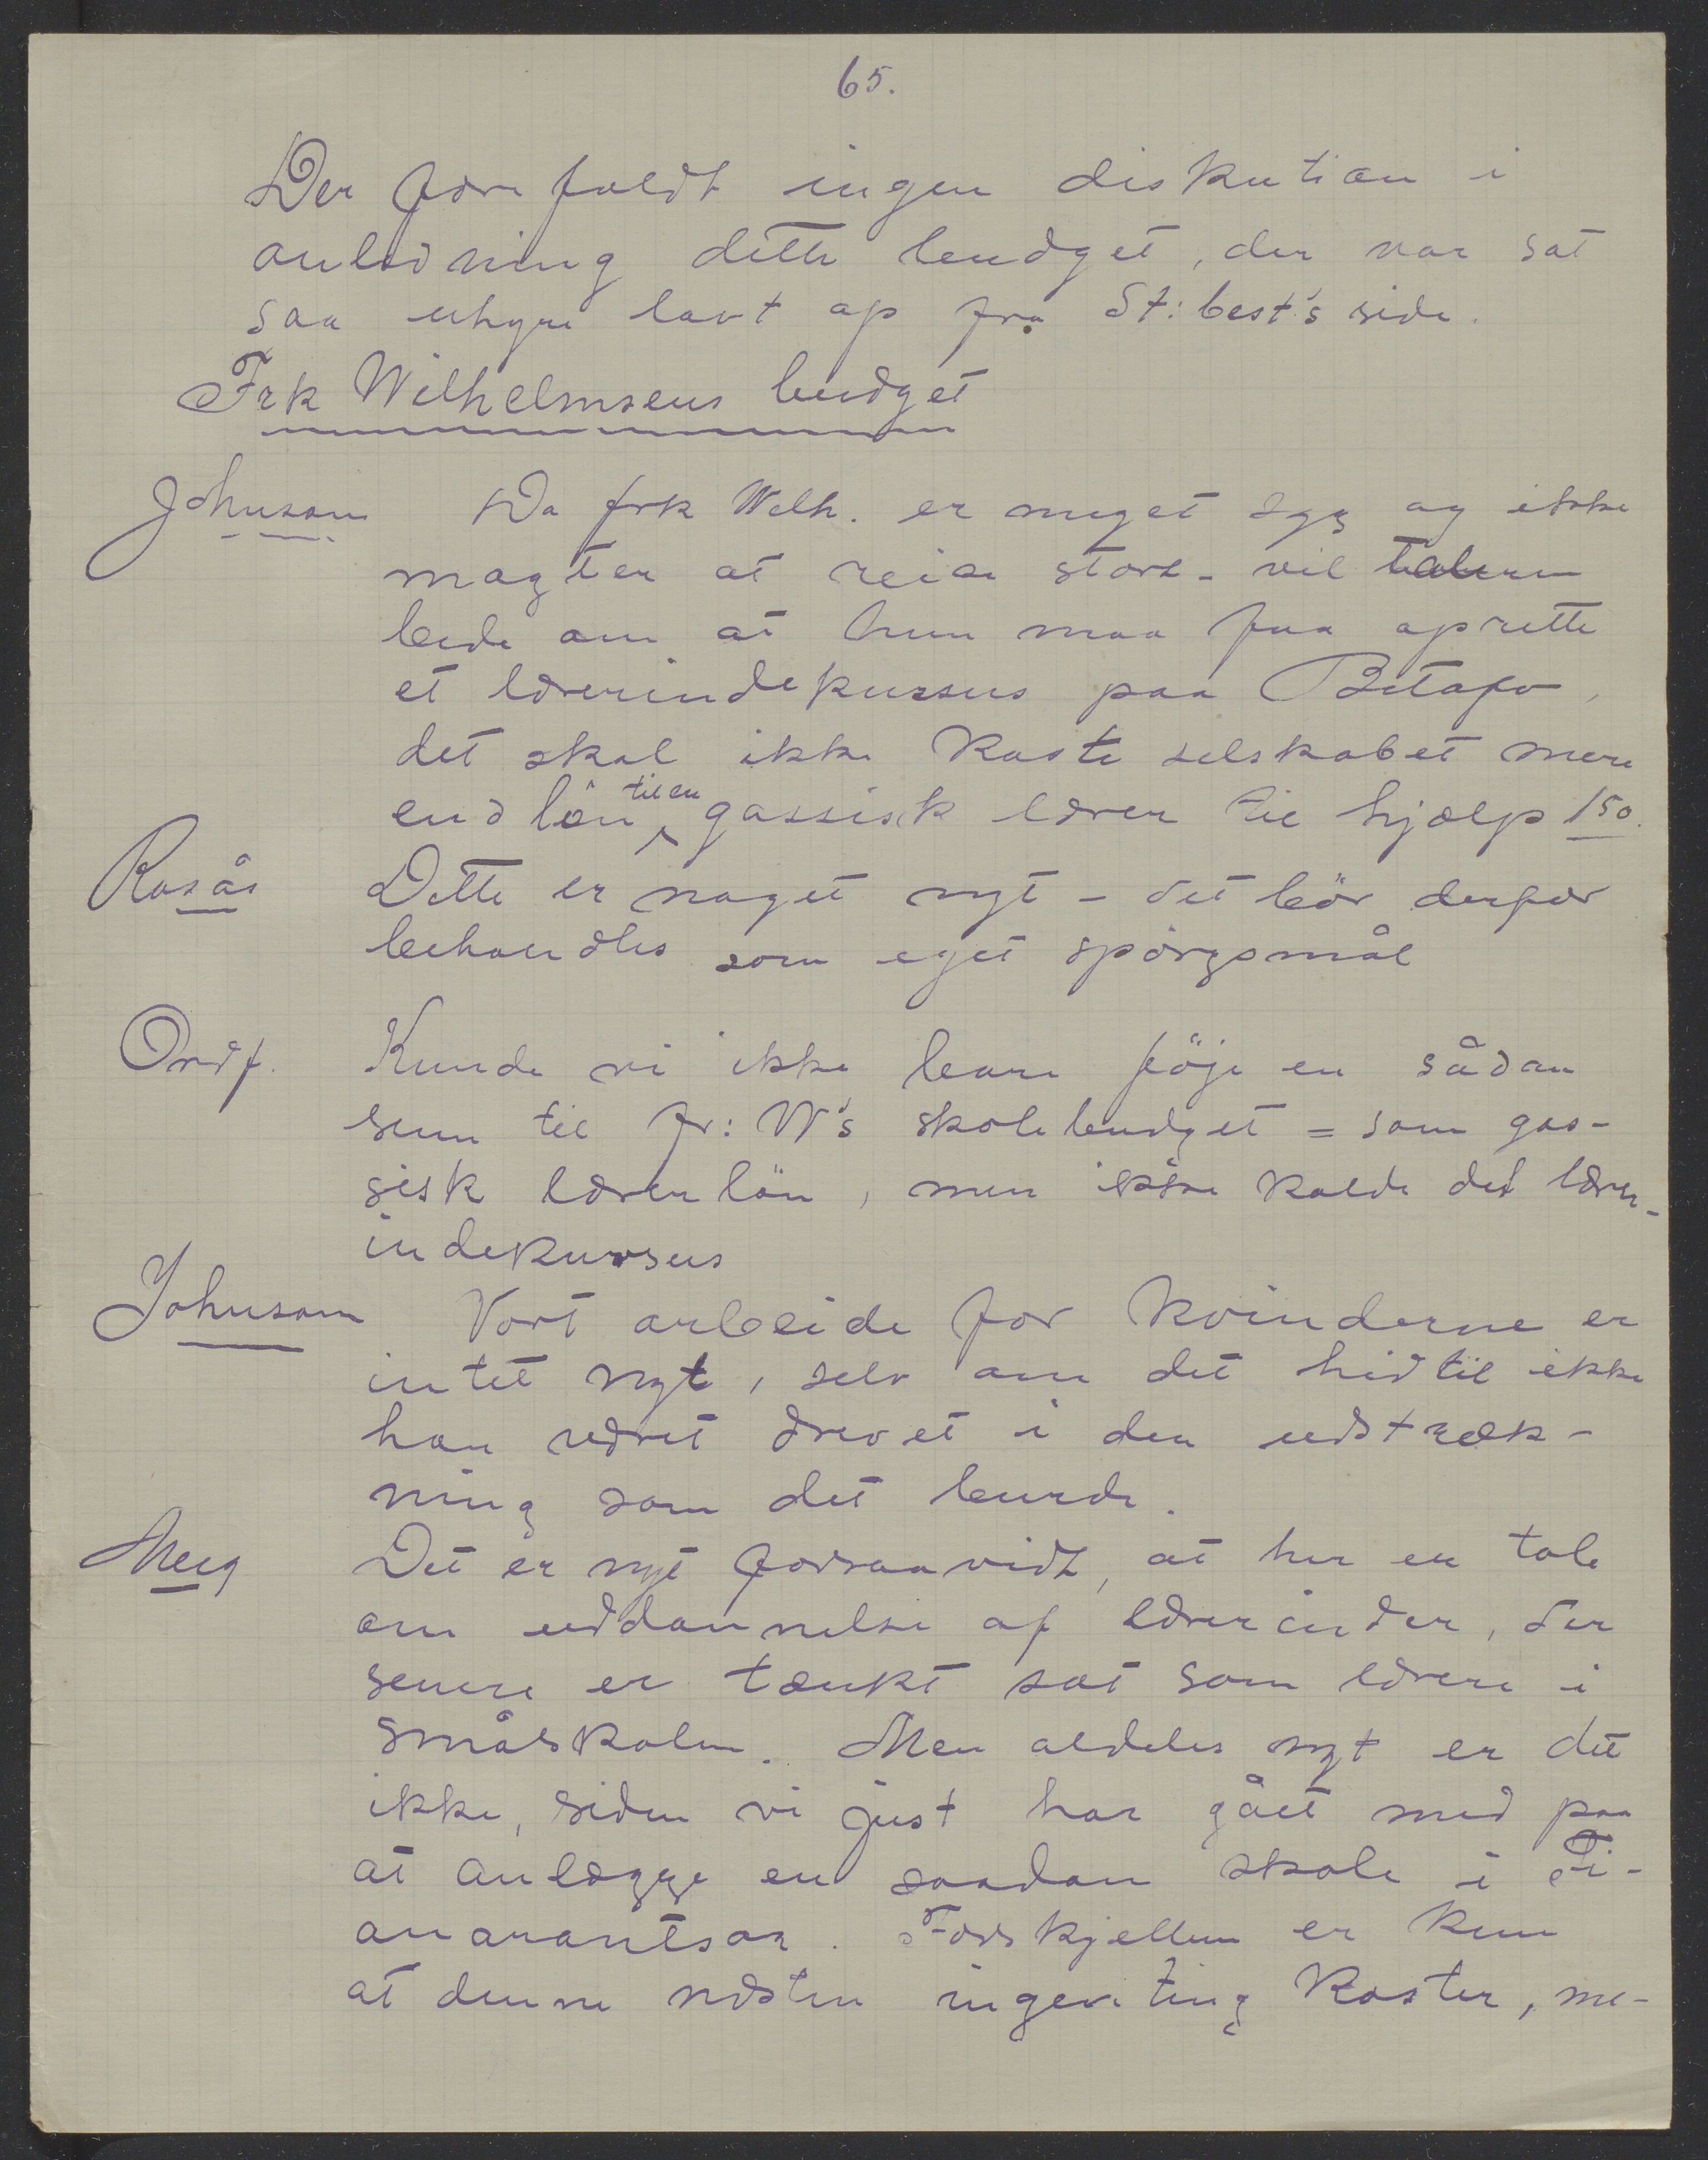 65.
Der forefaldt ingen diskution i
anledning dette budget, der var sat
saa uhyre lavt op fra St: best's side.
Frk Wilhelmsens budget
Johnson Da frk Wilh. er meget syg og ikke
magter at reise stort - vil taleren
bede om at hun maa faa oprette
et lærerindekursus paa Betafo,
det skal ikke koste selskabet mere
end lön til en gassisk lærer til hjælp 150.
Rosås Dette er noget nyt - det bör derfor
behandles som eget spörgsmål
Ordf. Kunde vi ikke bare föje en sådan
sum til fr: W's skolebudget = som gas-
sisk lærerlön, men ikke kalde det lærer-
indekursus
Johnson Vort arbeide for kvinderne er
intet nyt, selv om det hidtil ikke
har været drevet i den udstræk-
ning som det burde.
Meeg Det er nyt forsaavidt, at her er tale
om uddannelse af lærerinder, der
senere er tænkt sat som lærere i
småskolen. Men aldeles nyt er det
ikke, siden vi just har gået med paa
at anlægge en saadan skole i Fi-
anarantsoa. Forskjellen er kun
at denne næsten ingenting koster, me-